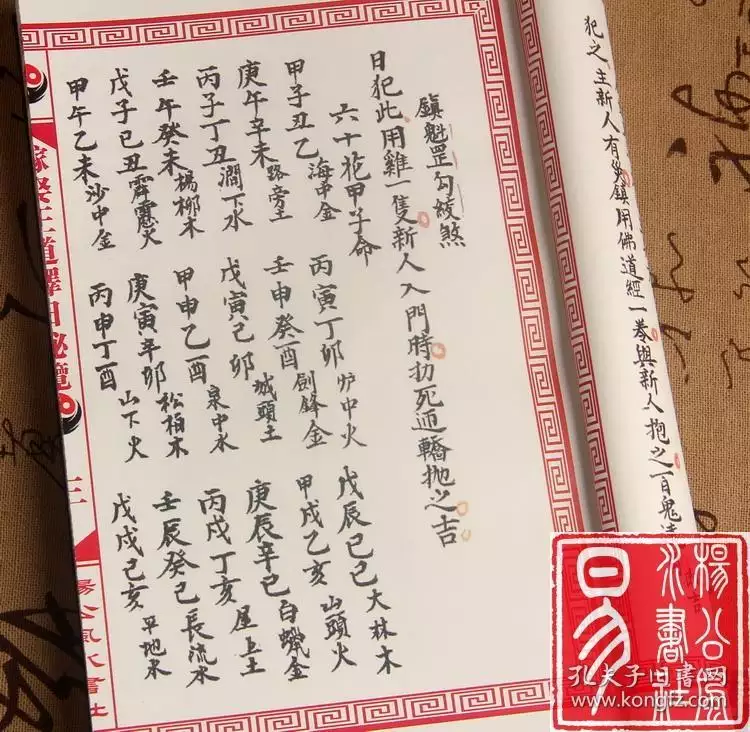 犯之主新人有災鎮用佛道經一卷與新人抱之百鬼
吉
鎮魁罡勾絞煞
日犯此用雞一隻新人入門時扨死逥轎拋之吉
六十花甲子命
甲子丑乙海中金 丙寅丁卯炉中火 戊辰巳己大林木
庚午辛未路旁土 壬申癸酉劍鋒金 甲戌乙亥山頭火
丙子丁丑澗下水 戊寅己卯城頭土 庚辰辛巳白蠟金
壬午癸未楊柳木 甲申乙酉泉中水 丙戌丁亥屋上土
戊子己丑霹靂火 庚寅辛卯松柏木 壬辰癸巳長流水
甲午乙未沙中金 丙申丁酉山下火 戊戌己亥平地水
嫁娶王道擇日秘覽
三
楊公風水書社
楊公風水書社
易
孔夫子旧书网
www.kongfz.com